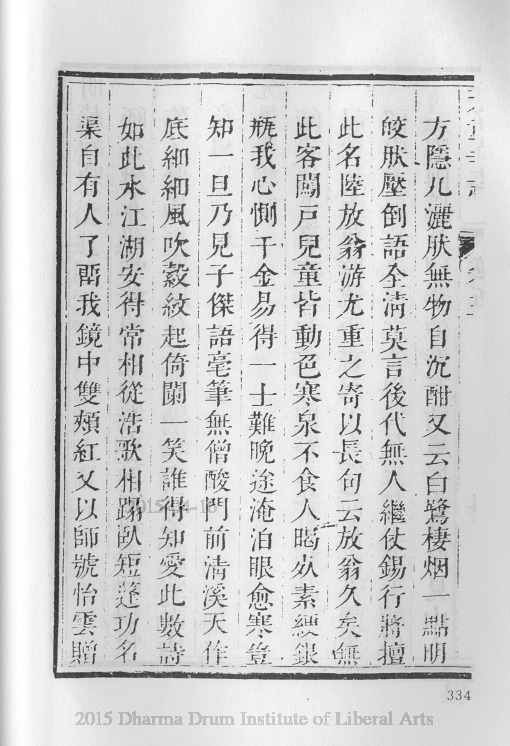 方隱几灑肰無物自沉酣又云白鷺棲烟一點明
皎肰壓倒語全淸莫言後代無人繼仗錫行將擅
此名陸放翁游尤重之寄以長句云放翁久矣無
此客闖戸兒童皆動色寒泉不食人暍死素綆銀
瓶我心惻千金易得一士難晚途淹泊眼愈寒豈
知一旦乃見子傑語毫筆無僧酸門前淸溪天作
底細細風吹縠紋起倚闌一笑誰得知愛此數詩
如此水江湖安得常相從浩歌相蹋臥短蓬功名
渠自有人了畱我鏡中雙頰紅又以師號怡雲贈
334
2015-04-16
2015 Dharma Drum Institute of Liberal Arts